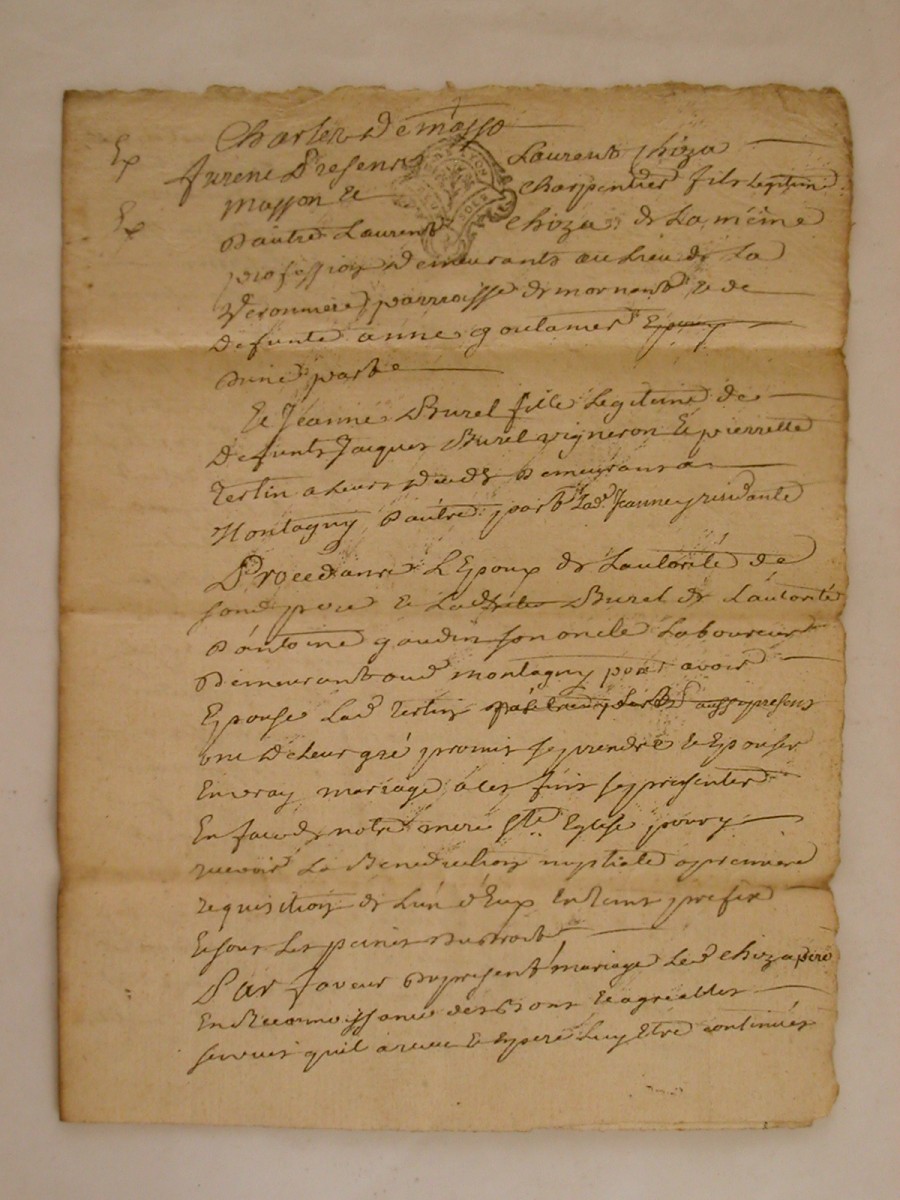 Charles Demasso
furent Presens Laurent Chiza
Masson et Charpentier fils Legitime
D'autre Laurent Chiza de La même
profession Demeurants au Lieu de La
Veronniere parroisse de mornant et de
Defunte anne goulamer
D'une part
Et Jeanne Burel fille Legitime de
Defunts Jacques Burel vigneron Et pierrette
Tertin a Leurs Demeurans a
Montagny D'autre part Lad. Jeanne
Procedans L'Epoux de L'autorité de
sond. pere et Lad. Burel de L'autorité
D'antoine gaudin son oncle Laboureur
Demeurant aud. montagny pour avoir
Epousé Lad. Tertin aussy presens
ont De Leur gré promis se prendre et Epouser
En vray mariage a ces fins se presenter
En face de notre mere Ste Eglise pour y
recevoir La Benediction nuptiale a premiere
requisition de L'un d'Eux En tems prefix
Et sous Les peines du droit
Par faveur Du present mariage Led. Chiza pere
En Reconnoissance des Bons Et agreables
services quil a receu Et Espere Luy Etre continués